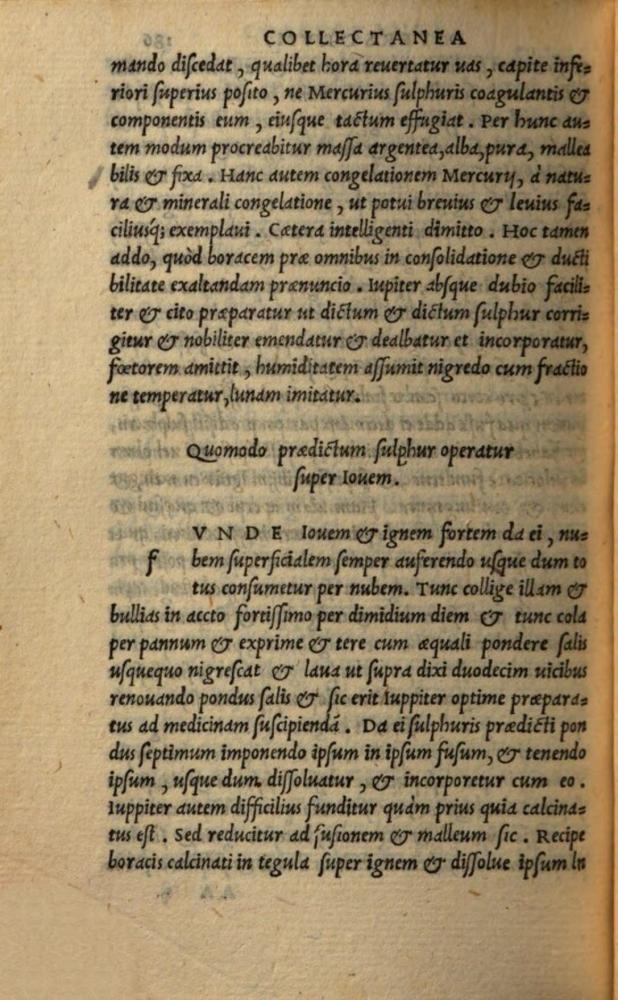 COLLECTANEA
mando discedat, qualibet hora reuertatur uas, capite infe=
riori superius posito, ne Mercurius sulphuris coagulantis &
componentis eum, eiusque tactum effugiat. Per hunc au=
tem modum procreabitur massa argentea, alba, pura, mallea
bilis & fixa. Hanc autem congelationem Mercurij, à natu=
ra & minerali congelatione, ut potui breuius & leuius fa=
ciliusq́; exemplaui. Cætera intelligenti dimitto. Hoc tamen
addo, quòd boracem præ omnibus in consolidatione & ducti
bilitate exaltandam prænuncio. Iupiter absque dubio facili=
ter & cito præparatur ut dictum & dictum sulphur corri=
gitur & nobiliter emendatur & dealbatur et incorporatur,
fœtorem amittit, humiditatem assumit nigredo cum fractio
ne temperatur, lunam imitatur.
Quomodo prædictum sulphur operatur
super Iouem.
VNDE Iouem & ignem fortem da ei, nu=
f bem superficialem semper auferendo usque dum to
tus consumetur per nubem. Tunc collige illam &
bullias in accto fortissimo per dimidium diem & tunc cola
per pannum & exprime & tere cum æquali pondere salis
usquequo nigrescat & laua ut supra dixi duodecim uicibus
renouando pondus salis & sic erit Iuppiter optime præpara=
tus ad medicinam suscipiendā. Da ei sulphuris prædicti pon
dus septimum imponendo ipsum in ipsum fusum, & tenendo
ipsum, usque dum dissoluatur, & incorporetur cum eo.
Iuppiter autem difficilius funditur quàm prius quia calcina=
tus est. Sed reducitur ad fusionem & malleum sic. Recipe
boracis calcinati in tegula super ignem & dissolue ipsum in